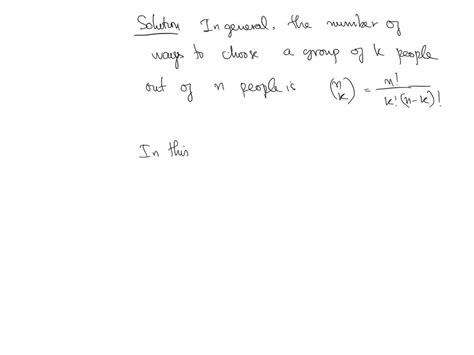 Solution In general, the number of
ways to choose a group of k people
out of n people is (n k) = n! / k!(n-k)!
In this